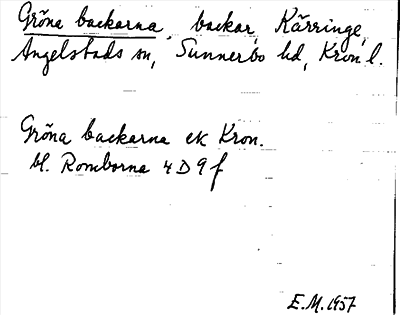 Gröna backarna, backar, Kärringe,
Angelstads sn, Sunnerbo hd, Kron.l.
Gröna backarna ek Kron.
bl. Romborna 4 D 9 f
E.M. 1957